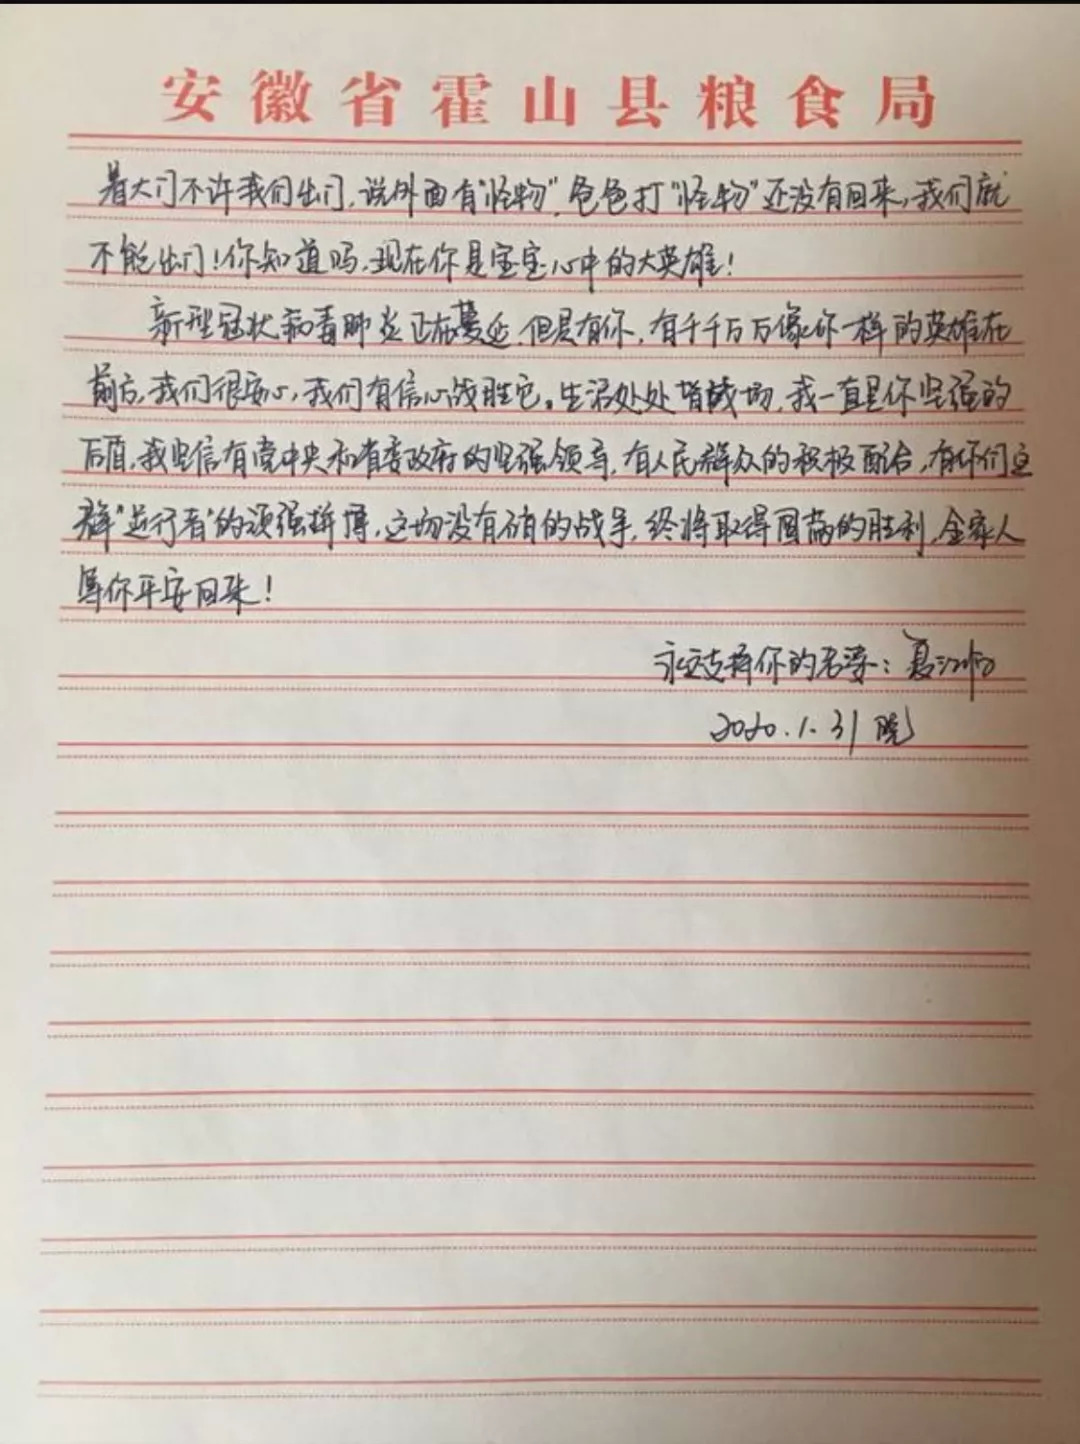 安徽省霍山县粮食局
着大门不许我们出门,说外面有“怪物”,爸爸打“怪物”还没有回来,我们就
不能出门!你知道吗,现在你是宝宝心中的大英雄!
新型冠状病毒肺炎正在蔓延,但是有你,有千千万万像你一样的英雄在
前方,我们很安心,我们有信心战胜它。生活处处皆战场,我一直是你坚强的
后盾,我坚信有党中央和省委政府的坚强领导,有人民群众的积极配合,有你们这
群“逆行者”的顽强拼搏,这场没有硝的战争,终将取得圆满的胜利,全家人
等你平安回来!
永远支持你的老婆:夏
2020.1.31 晚